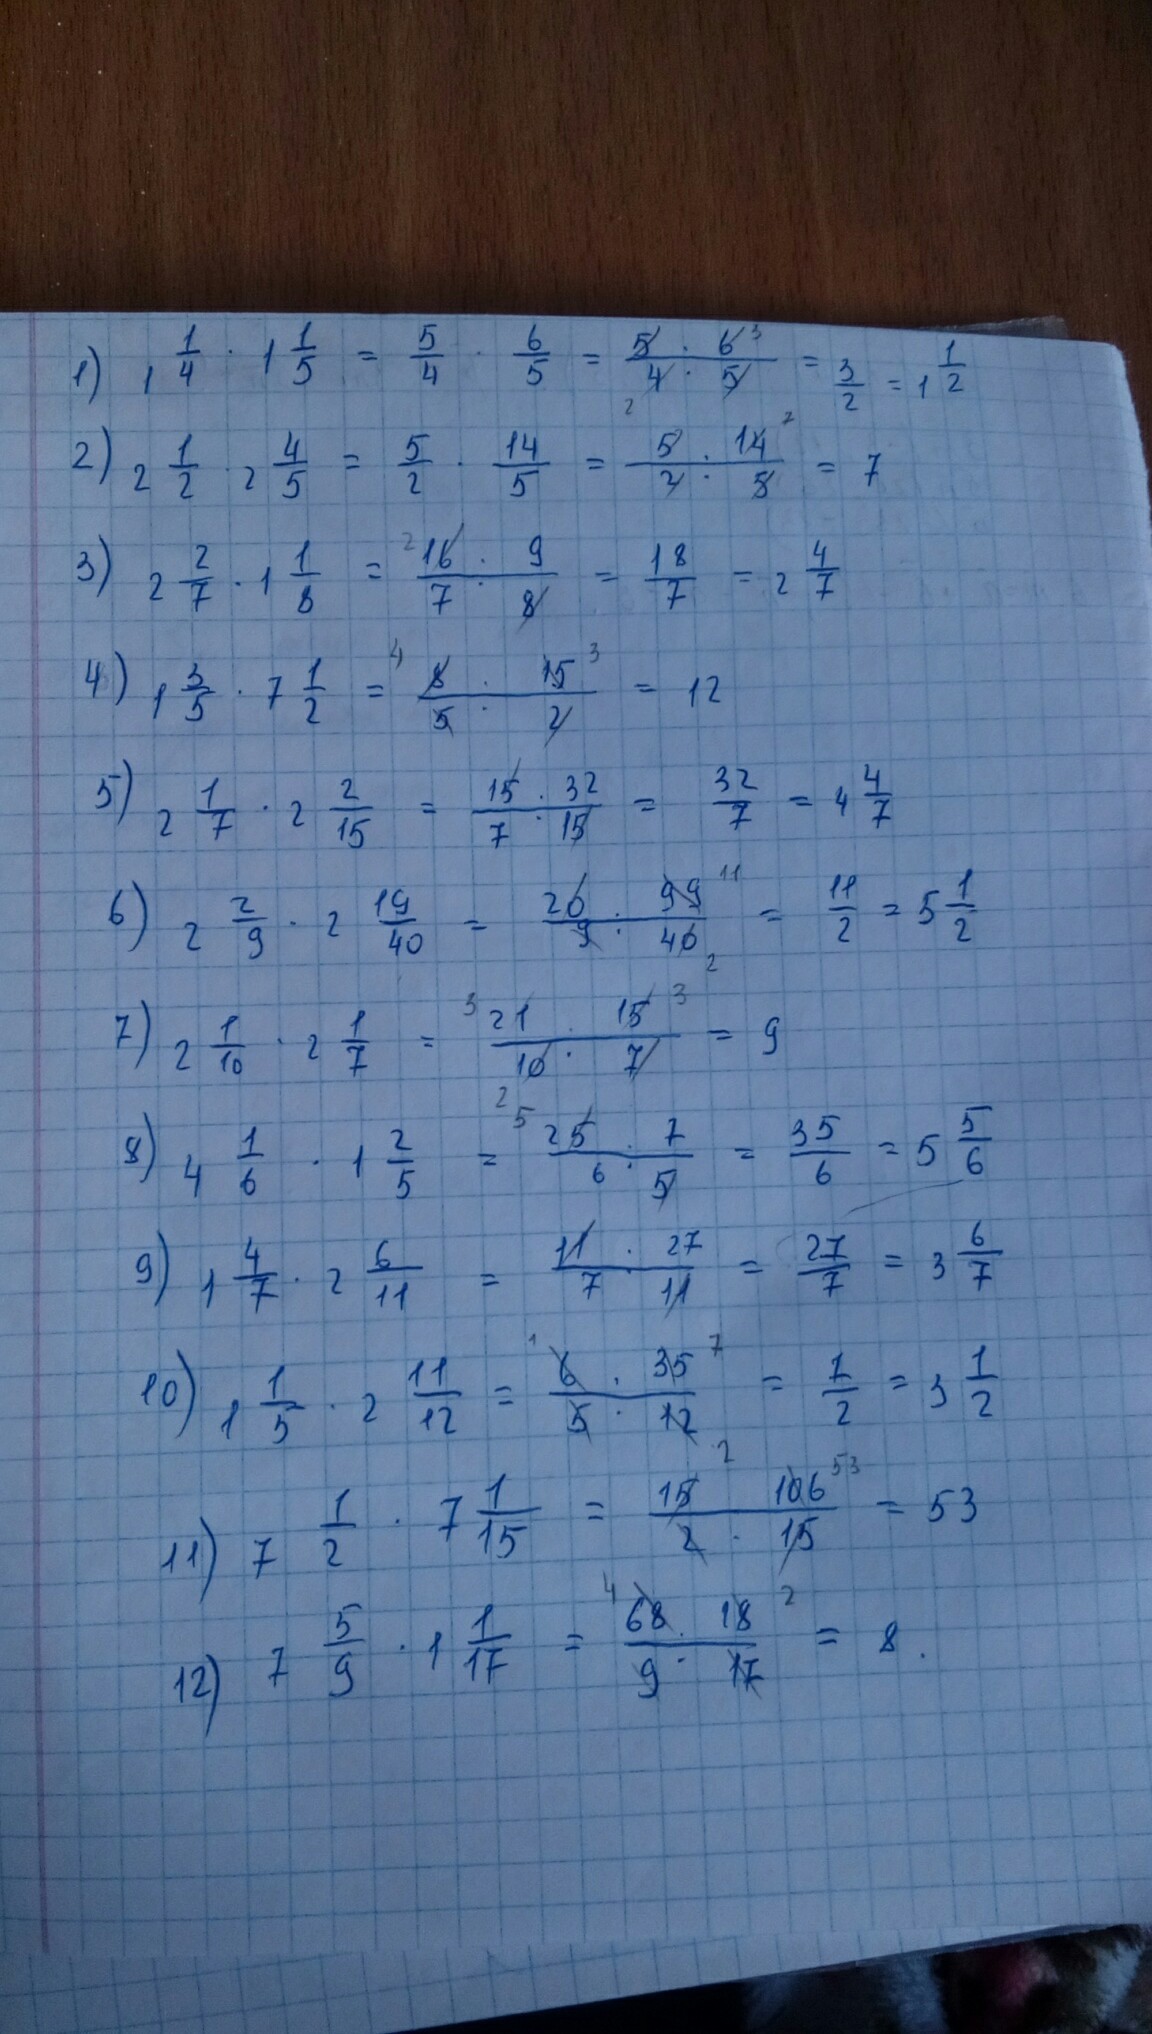 1) 1 1/4 · 1 1/5 = 5/4 · 6/5 = 5 · 6 3 / 4 · 5 2 = 3/2 = 1 1/2
2) 2 1/2 · 2 4/5 = 5/2 · 14/5 = 5 · 14 / 2 · 5 = 7
3) 2 2/7 · 1 1/8 = 2 16 · 9 / 7 · 8 = 18/7 = 2 4/7
4) 1 3/5 · 7 1/2 = 4 8 · 15 3 / 5 · 2 = 12
5) 2 1/7 · 2 2/15 = 15 · 32 / 7 · 15 = 32/7 = 4 4/7
6) 2 2/9 · 2 19/40 = 20 · 99 11 / 9 · 40 2 = 11/2 = 5 1/2
7) 2 1/10 · 2 1/7 = 3 21 · 15 3 / 10 · 7 2 = 9
8) 4 1/6 · 1 2/5 = 5 25 · 7 / 6 · 5 = 35/6 = 5 5/6
9) 1 4/7 · 2 6/11 = 11 · 27 / 7 · 11 = 27/7 = 3 6/7
10) 1 1/5 · 2 11/12 = 1 6 · 35 7 / 5 · 12 2 = 7/2 = 3 1/2
11) 7 1/2 · 7 1/15 = 15 106 53 / 2 · 15 = 53
12) 7 5/9 · 1 1/17 = 4 68 · 18 2 / 9 · 17 = 8.